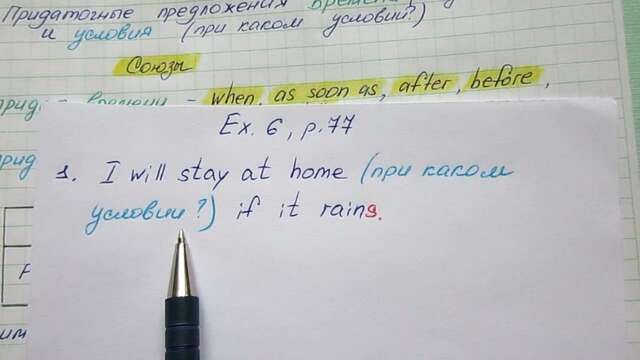 Придаточные предложения времени
и условия (при каком условии?)
Союзы
прид. - времени - when, as soon as, after, before,
Ex. 6, p.77
1. I will stay at home (при каком
условии?) if it rains.